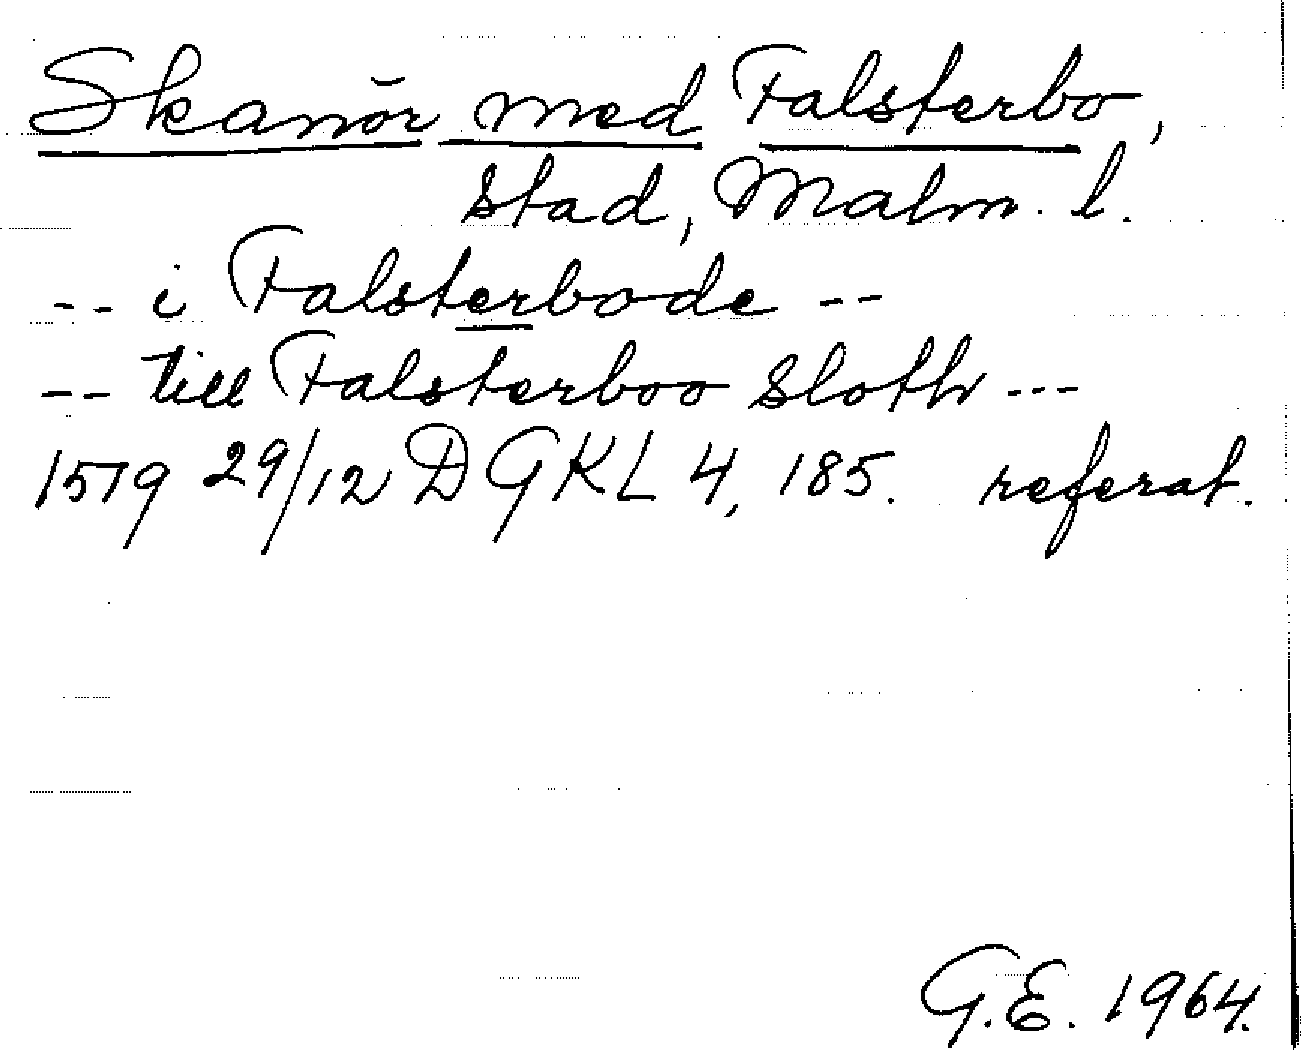 Skanör med Falsterbo,
stad, Malm. l.
-- i Falsterbode --
-- till Falsterboo Sloth ---
1579 29/12 DGKL 4, 185. referat.
G.E. 1964.